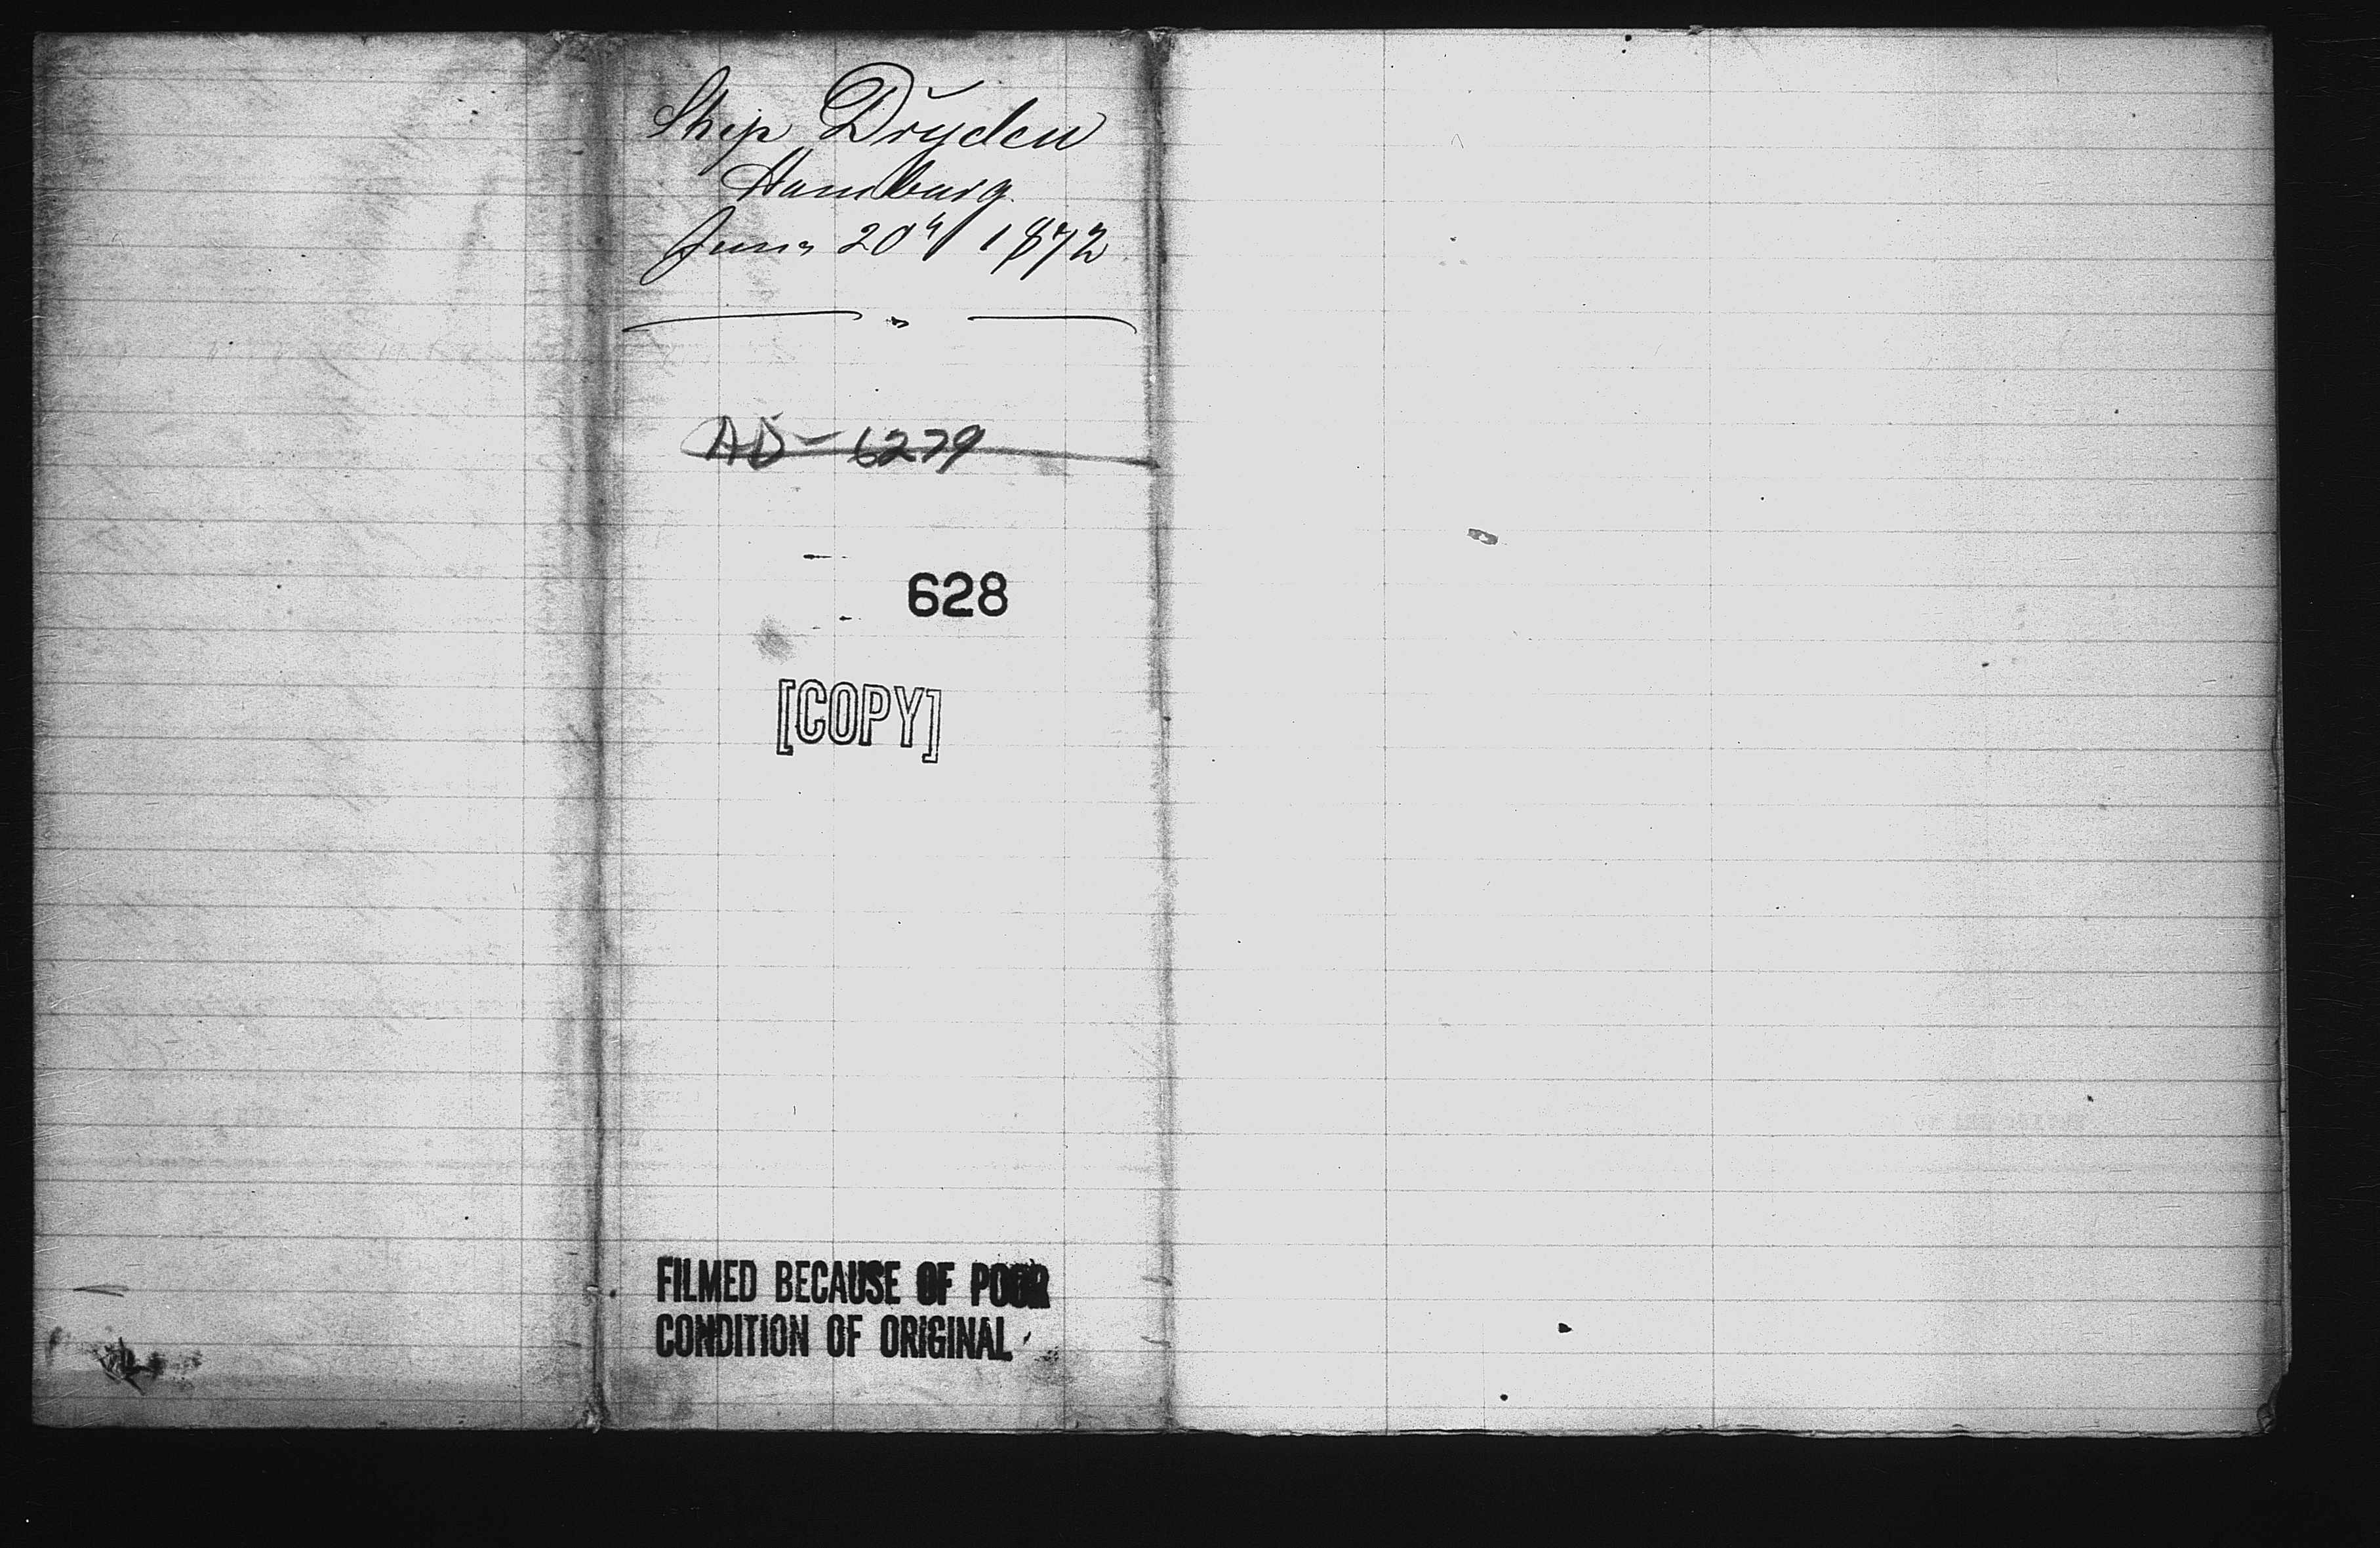 Ship Dryden
Hamburg.
June 20th 1872
AD-6279
628
[COPY]
FILMED BECAUSE OF POOR
CONDITION OF ORIGINAL